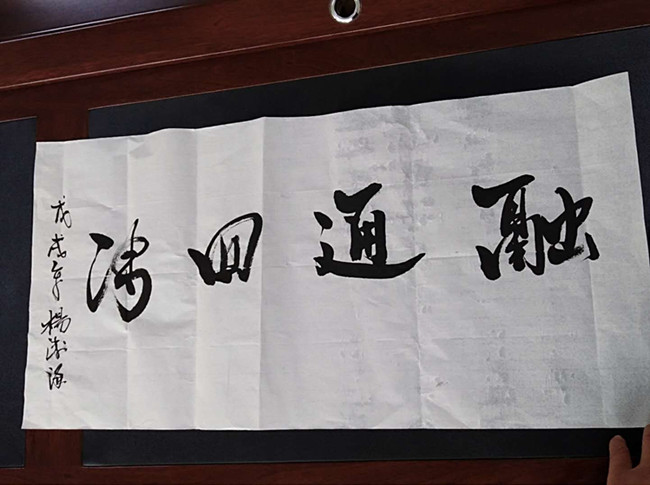 融通四海
戊戌年楊